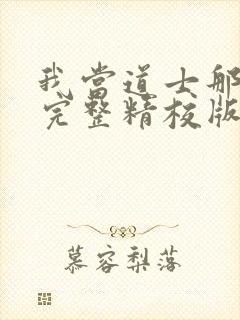 我当道士那
完整精校版
慕容梨落